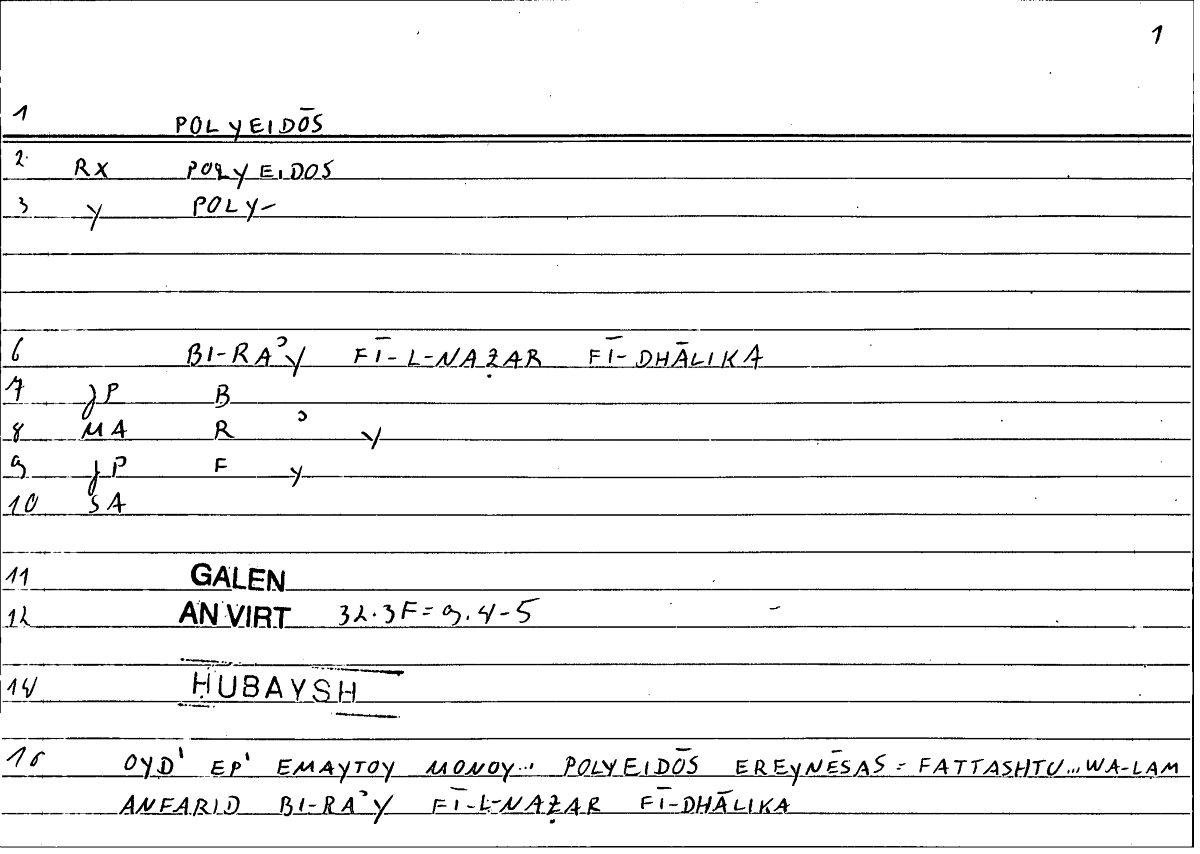 1
1 POLYEIDŌS
2 RX POLYEIDOS
3 Y POLY-
6 BI-RAʾY FĪ-L-NAẒAR FĪ-DHĀLIKA
7 JP B
8 MA R ʾ Y
9 JP F Y
10 SA
11 GALEN
12 AN VIRT 32.3F=9.4-5
14 ḤUBAYSH
16 OYD' EP' EMAYTOY MONOY... POLYEIDŌS EREYNĒSAS = FATTASHTU...WA-LAM
ANFARID BI-RAʾY FĪ-L-NAẒAR FĪ-DHĀLIKA